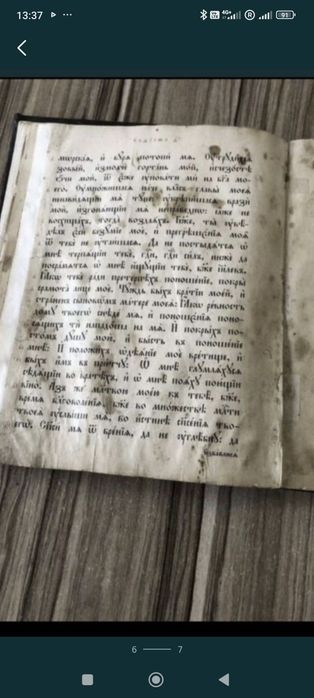 13:37
4G+
91
морскїѧ, и҆ бꙋрѧ потопи мѧ. Оу҆трꙋдихсѧ
зовый, и҆змолче гортань мой, и҆счезостѣ
ѻ҆чи мои, ѿ є҆же оу҆повати ми на бг҃а мо-
егѡ. Оу҆множишасѧ паче власъ главы моеѧ
ненавидѧщїи мѧ тꙋне: оу҆крѣпишасѧ врази
мои, и҆згонѧщїи мѧ неправеднѡ: ꙗ҆же не
восхищахъ, тогда воздаѧхъ. Бж҃е, ты оу҆вѣ-
дѣлъ є҆си безꙋмїе мое, и҆ прегрѣшенїѧ моѧ
ѿ тебе не оу҆таишасѧ. Да не постыдѧтсѧ ѡ҆
мнѣ терпѧщїи тебе, гдⷭ҇и, гдⷭ҇и силъ, ниже да
посрамѧтсѧ ѡ҆ мнѣ и҆щꙋщїи тебе, бж҃е і҆и҃левъ.
Ꙗ҆кѡ тебе ради претерпѣхъ поношенїе, покры
срамота лице мое. Чꙋждь быхъ братїи моей, и҆
страненъ сыновѡмъ матере моеѧ: Ꙗ҆кѡ ревность
домꙋ твоегѡ снѣде мѧ, и҆ поношенїѧ поно-
сѧщихъ ти нападоша на мѧ. И҆ покрыхъ по-
стомъ дꙋшꙋ мою, и҆ бысть въ поношенїе
мнѣ: И҆ положихъ ѡ҆дѣѧнїе мое вретище, и҆
быхъ и҆мъ въ притчꙋ: Ѡ҆ мнѣ глꙋмлѧхꙋсѧ
сѣдѧщїи во вратѣхъ, и҆ ѡ҆ мнѣ поѧхꙋ пїющїи
вїно. А҆зъ же мл҃твою моею къ тебѣ, бж҃е,
времѧ бл҃говоленїѧ, бж҃е во множествѣ млⷭ҇ти
твоеѧ оу҆слыши мѧ, во и҆стинѣ сп҃сенїѧ тво-
егѡ. Сп҃си мѧ ѿ бренїѧ, да не оу҆глѣбнꙋ: да
и҆збавлюсѧ
6 7